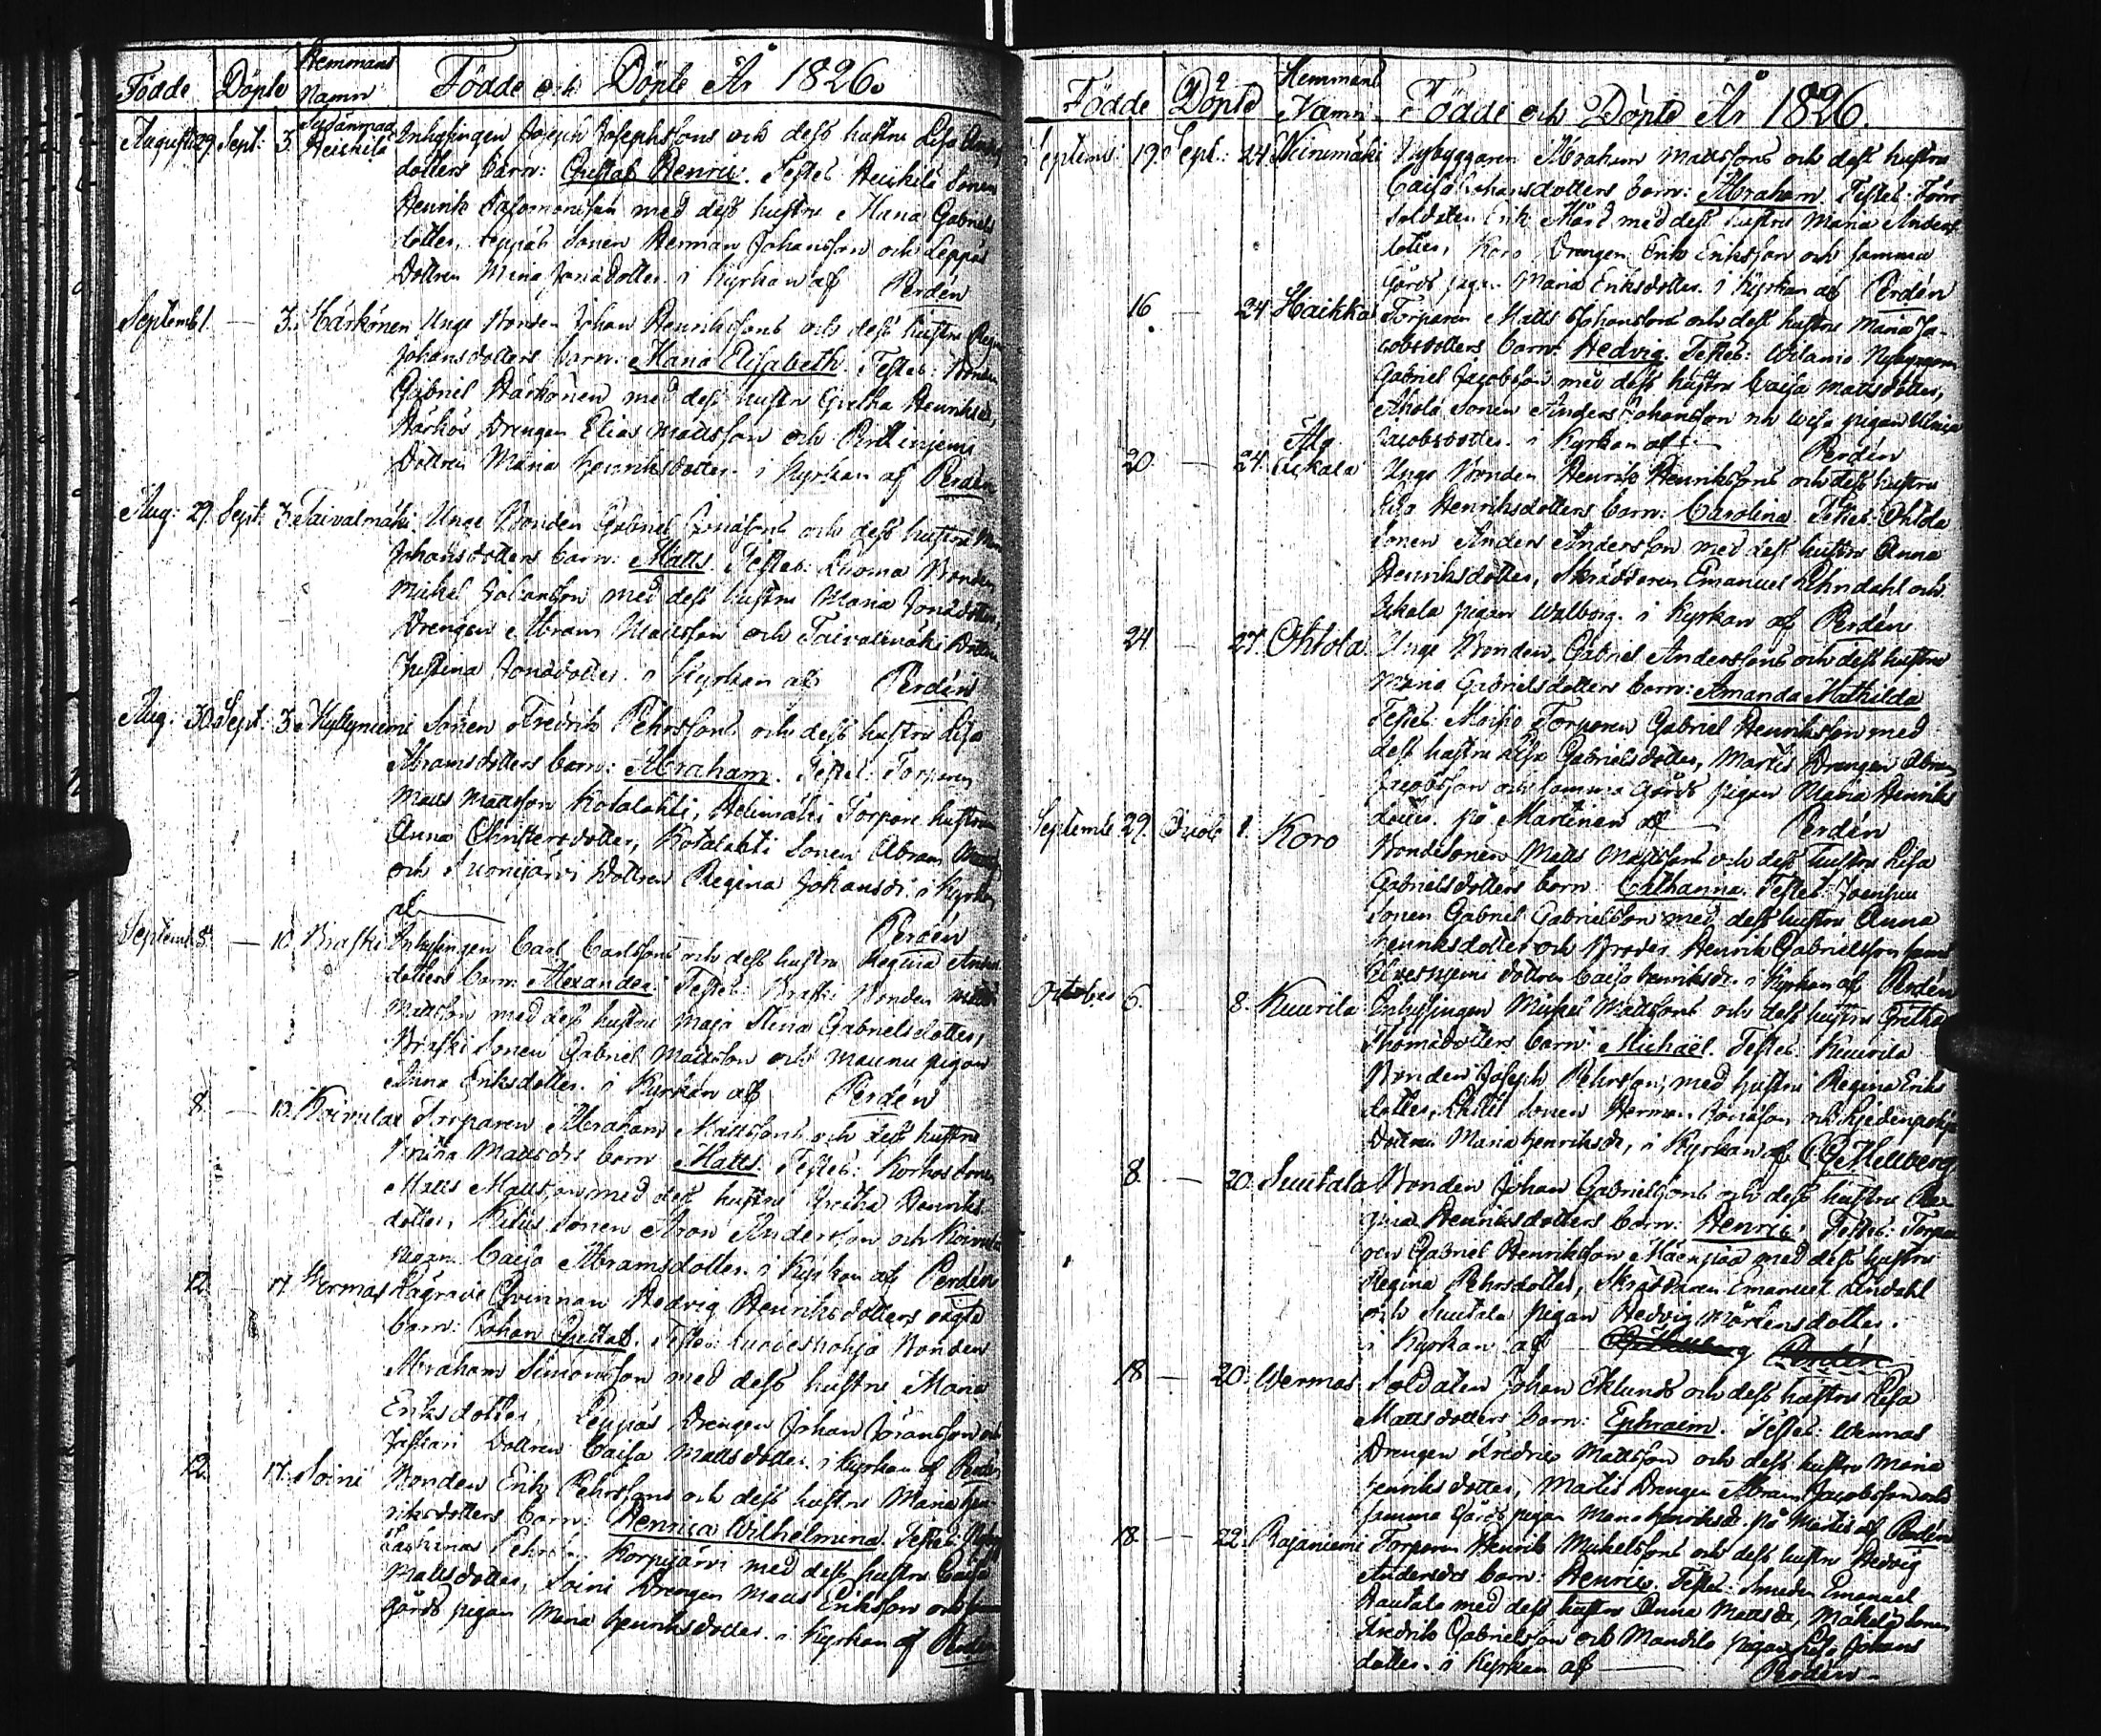 Födde Döpte Hemmans Namn Födde och Döpte År 1826.
Augusti 29. Sept: 3. Sydänmaa Heickilä Inhysingen Joseph Josephssons och dess hustru Lisa
dotters barn: Gustaf Henric. Testes Heickilä Sonen
Henrik Salomonsson med dess hustru Maria Gabriels
dotter, Leppäs Sonen Herman Johansson och Leppäs
Dottren Mina Jonædotter. i Kyrkan af Perdén
Septemb 1. — 3. Härkönen Unge Bonden Johan Henrikssons och dess hustru
Johansdotters barn: Maria Elisabeth. Testes: Bonden
Gabriel Härkönen med dess hustru Gretha Henriksd,
Härkös Drengen Elias Mattsson och
Dottren Maria Henriksdotter. i Kyrkan af Perdén
Aug: 29. Sept: 3. Taivalmäki Unge Bonden Gabriel Jonæsons och dess hustru
Johansdotters barn: Matts. Testes: Luoma Bonden
Michel Johansson med dess hustru Maria Jonædotter,
Drengen Abram Mattsson och Taivalmäki Dottren
Justina Jonædotter. i Kyrkan af Perdén
Aug: 30. Sept: 3. Myllyniemi Sonen Fredrik Pehrssons och dess hustru Lisa
Abramsdotters barn: Abraham. Testes: Torparen
Matts Mattsson Kotalahti, Torpare hustrun
Anna Christersdotter, Kotalahti Sonen Abram
och Dottren Regina Johansd: i Kyrkan
af — Perdén
Septemb 5. — 10. Braski Inhysingen Carl Carlssons och dess hustru Regina
dotters barn: Alexander. Testes: Braski Bonden
Mattsson med dess hustru Maja Stina Gabrielsdotter,
Braski Sonen Gabriel Mattsson och Maunu pigan
Anna Eriksdotter. i Kyrkan af Perdén
8. — 10. Koivula Torparen Abraham Mattssons och dess hustru
Mattsdrs barn Matts. Testes: Korhos Sonen
Matts Mattsson med dess hustru Gretha Henriks
dotter, Sonen Aron Andersson och Koivula
pigan Caisa Abramsdotter. i Kyrkan af Perdén
12. 17. Wermas Lägrade Qvinnan Hedvig Henriksdotters oägta
barn: Johan Gustaf. Testes: Bonden
Abraham Simonsson med dess hustru Maria
Eriksdotter, Leppäs Drengen Johan Göransson och
Jaskari Dottren Caisa Mattsdotter. i Kyrkan af Perdén
12. 17. Soini Bonden Erik Pehrssons och dess hustru Maria Hen-
riksdotters barn: Henrica Wilhelmina. Testes:
Korpijärvi med dess hustru Caisa
Mattsdotter, Soini Drengen Matts Eriksson och
gårds pigan Maria Henriksdotter. i Kyrkan af Perdén
Födde Döpte Hemmans Namn Födde och Döpte År 1826.
Septemb: 19. Sept: 24. Niinimäki Nybyggaren Abraham Mattssons och dess hustru
Caisa Johansdotters barn: Abraham. Testes: Förre
Soldaten Erik Mård med dess hustru Maria Anders-
dotter, Koro Drengen Erik Eriksson och samma
Gårds pigan Maria Eriksdotter. i Kyrkan af Perdén
16 — 24 Haikka Torparen Matts Johanssons och dess hustru Maria Ja-
cobsdotters barn: Hedvig. Testes:
Gabriel Jacobsson med dess hustru Caisa Mattsdotter,
Ahola Sonen Anders Johansson och
Jacobsdotter. i Kyrkan af — Perdén
20. — 24. Unge Bonden Henrik Henrikssons och dess hustru
Lisa Henriksdotters barn: Carolina. Testes: Ohtola
Sonen Anders Andersson med dess hustru Anna
Henriksdotter, Skräddaren Emanuel och
pigan Walborg. i Kyrkan af Perdén
24 — 27. Ohtola. Unge Bonden Gabriel Anderssons och dess hustru
Maria Gabrielsdotters barn: Amanda Mathilda
Testes: Torparen Gabriel Henriksson med
dess hustru Lisa Gabrielsdotter, Martis Drengen Abram
Jacobsson och samma Gårds pigan Maria Henriks
dotter. på Martinen af — Perdén
Septembr 29. Octob 1. Koro Bondesonen Matts Mattssons och dess hustru Lisa
Gabrielsdotters barn: Catharina. Testes: Joensuu
Sonen Gabriel Gabrielsson med dess hustru Anna
Henriksdotter och Broder Henrik Gabrielsson
dottren Caisa Henriksdr. i Kyrkan af Perdén
October 6. 8. Kuurila Inhysingen Michel Mattssons och dess hustru Gretha
Thomædotters barn: Michaël. Testes: Kuurila
Bonden Joseph Pehrsson, med hustru Regina Eriks
dotter, Sonen Herman Jonæson och
Dottren Maria Henriksdr, i Kyrkan af Hellberg
8. — 20. Suutala Bonden Johan Gabrielssons och dess hustru Re-
gina Henriksdotters barn: Henric. Testes: Torpa-
ren Gabriel Henriksson Mäenpää med dess hustru
Regina Pehrsdotter, Skräddaren Emanuel
och Suutala pigan Hedvig Mårtensdotter.
i Kyrkan af Perdén
18 — 20. Wermas Soldaten Johan Eklunds och dess hustru Lisa
Mattsdotters barn: Ephraim. Testes: Wermas
Drengen Fredric Mattsson och dess hustru Maria
Henriksdotter, Martis Drengen Abram Jacobsson och
samma Gårds pigan Maria Henriksd. på Martis af Perdén
18. — 22. Rajaniemi Torparen Henrik Michelssons och dess hustru Hedvig
Andersdrs barn: Henric. Testes: Smeden Emanuel
Rautala med dess hustru Anna Mattsdr, Mäkelä Sonen
Fredrik Gabrielsson och Mandila pigan Lisa Johans
dotter. i Kyrkan af — Perdén